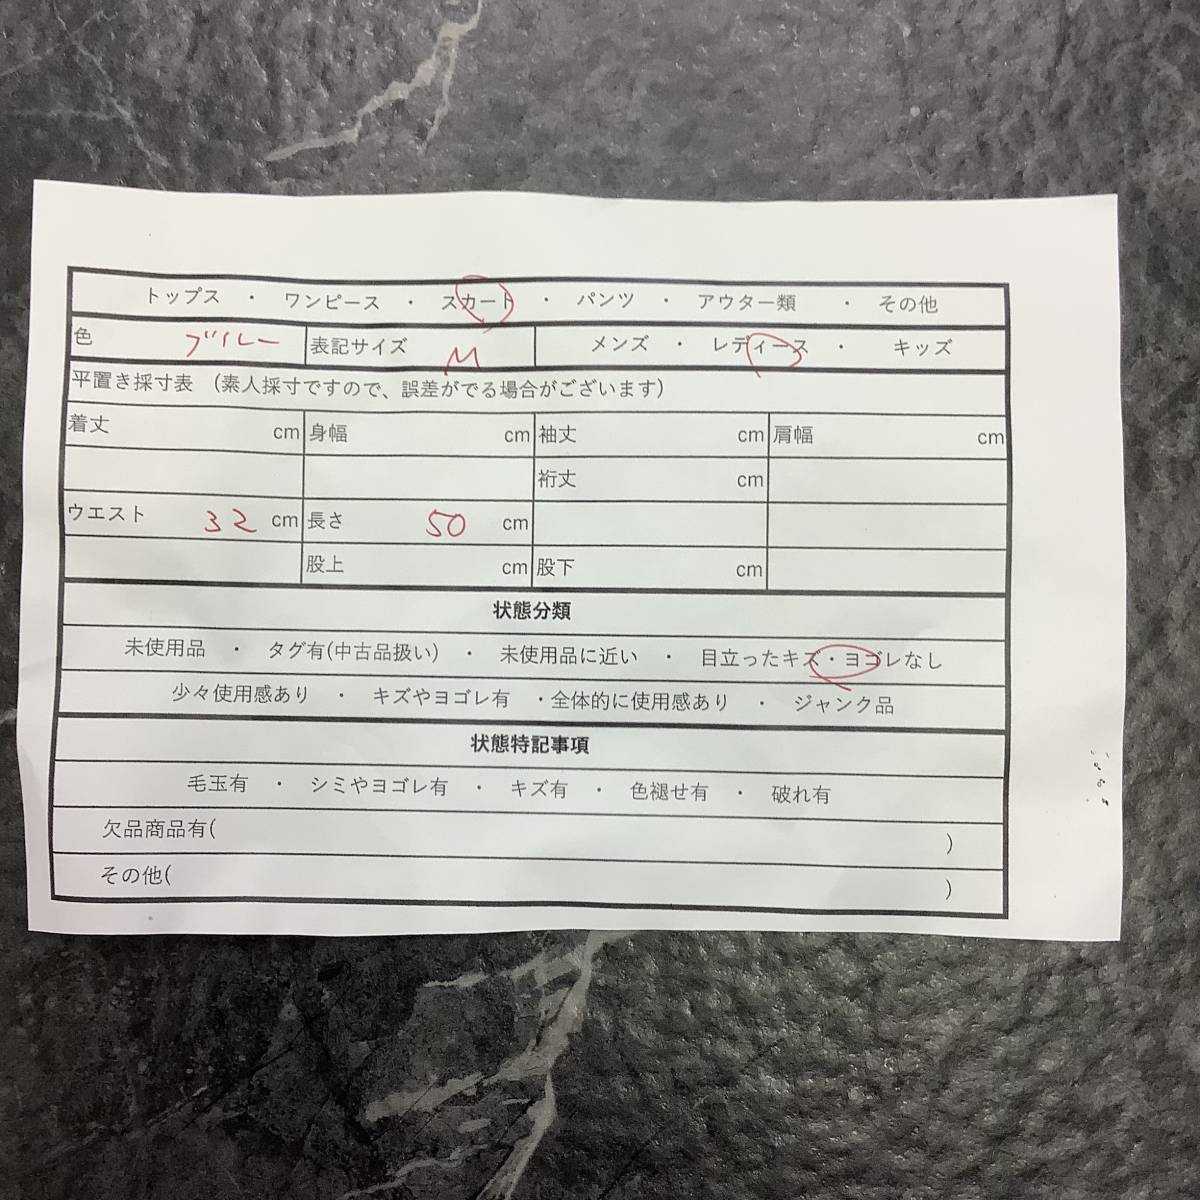 トップス ・ ワンピース ・ スカート ・ パンツ ・ アウター類 ・ その他
色 ブルー 表記サイズ M メンズ ・ レディース ・ キッズ
平置き採寸表 （素人採寸ですので、誤差がでる場合がございます）
着丈 cm 身幅 cm 袖丈 cm 肩幅 cm
裄丈 cm
ウエスト 32 cm 長さ 50 cm
股上 cm 股下 cm
状態分類
未使用品 ・ タグ有(中古品扱い) ・ 未使用品に近い ・ 目立ったキズ・ヨゴレなし
少々使用感あり ・ キズやヨゴレ有 ・全体的に使用感あり ・ ジャンク品
状態特記事項
毛玉有 ・ シミやヨゴレ有 ・ キズ有 ・ 色褪せ有 ・ 破れ有
欠品商品有( )
その他( )